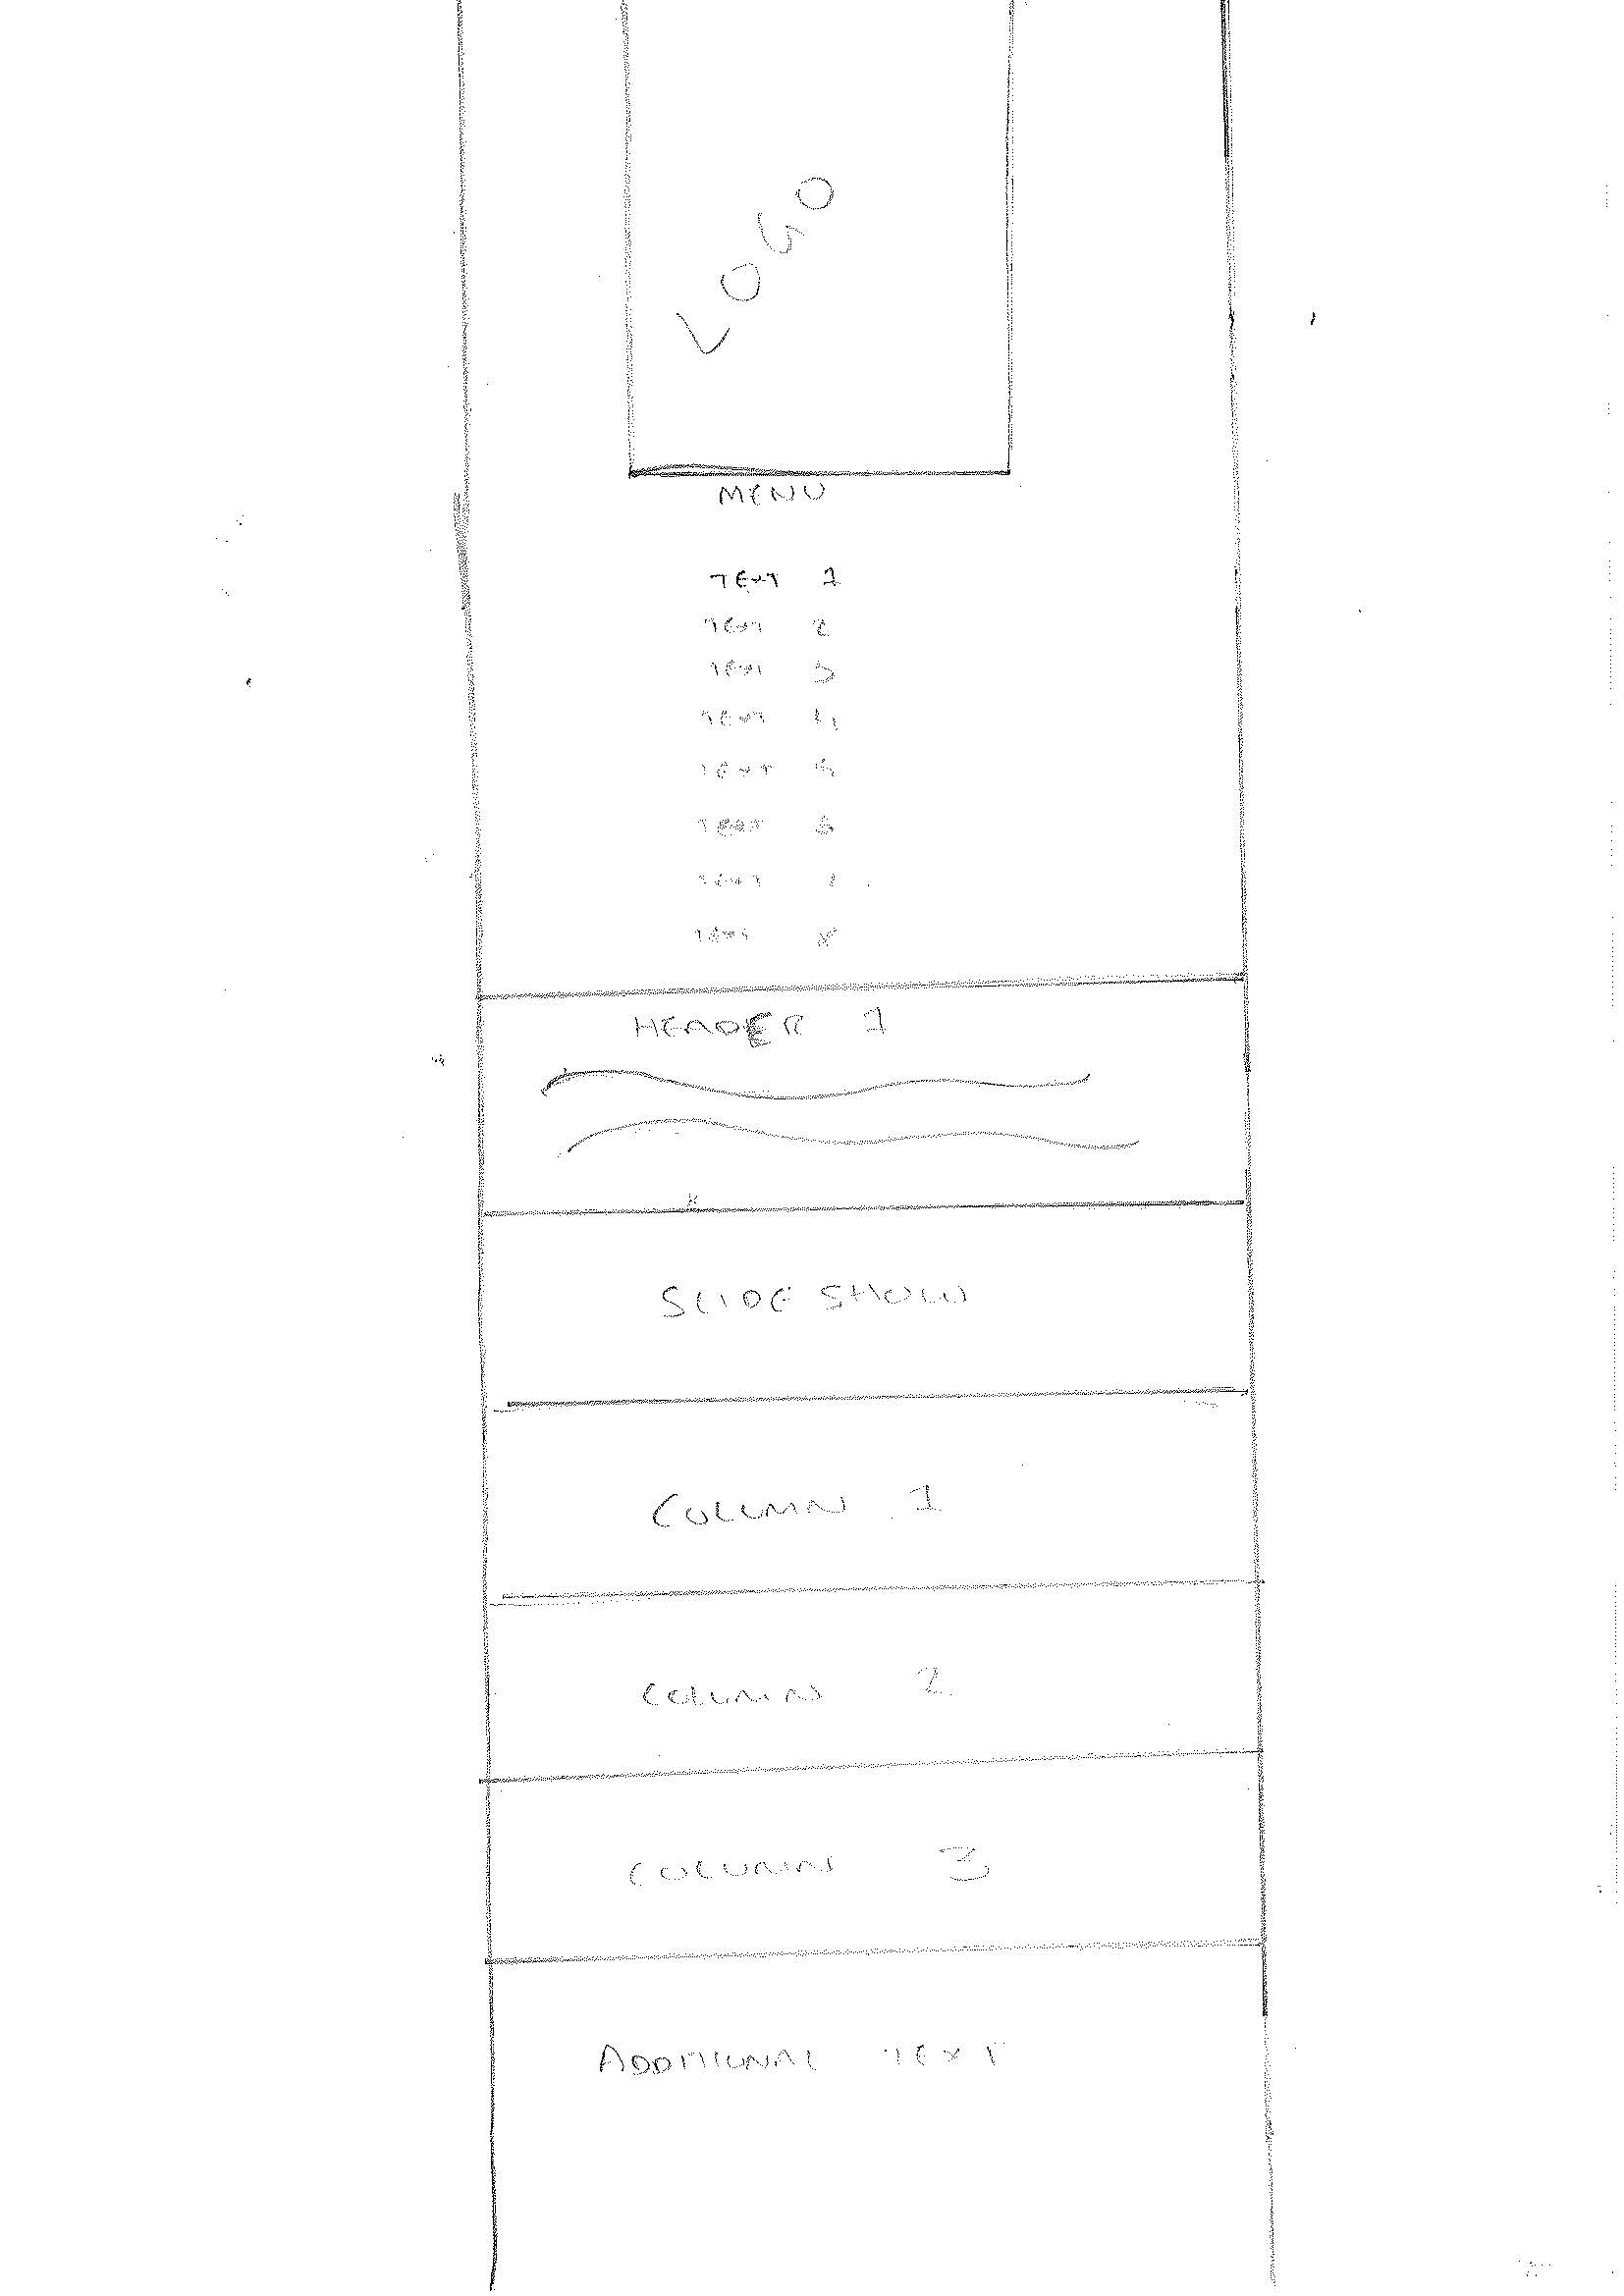 LOGO
MENU
TEXT 1
TEXT 2
TEXT 3
TEXT 4
TEXT 5
TEXT 6
TEXT 7
TEXT 8
HEADER 1
SLIDE SHOW
COLUMN 1
COLUMN 2
COLUMN 3
ADDITIONAL TEXT